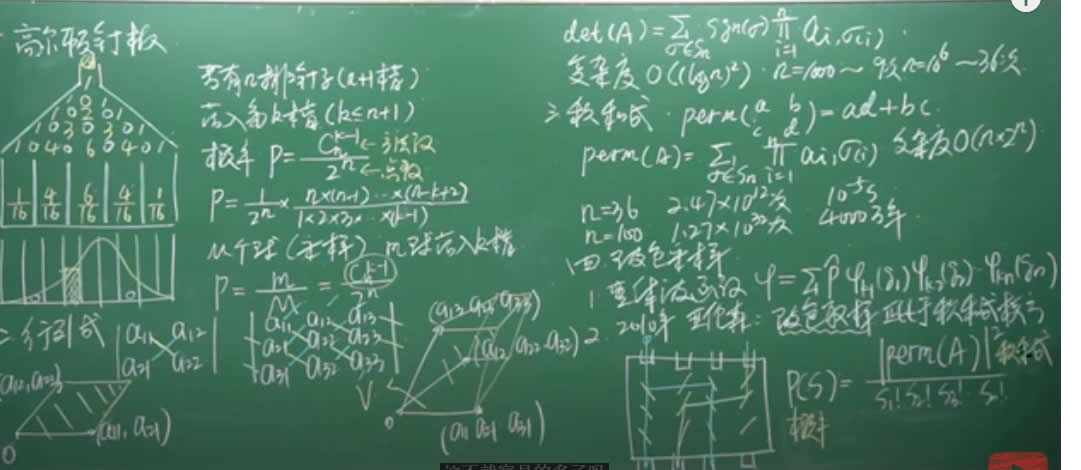 一 高尔顿钉板
1
1 0 1
1 0 2 0 1
1 0 3 0 3 0 1
1 0 4 0 6 0 4 0 1
1/16 4/16 6/16 4/16 1/16
若有n排钉子(n+1槽)
落入第k槽(k≤n+1)
概率 P = C_n^{k-1} / 2^n ←方法数 ←总数
P = 1/2^n × n×(n-1)···×(n-k+2) / 1×2×3×···×(k-1)
M个球(采样) m球落入k槽
P = m/M = C_n^{k-1} / 2^n
二 行列式
a11 a12
a21 a22
(a12, a22)
(a11, a21)
0
a11 a12 a13
a21 a22 a23
a31 a32 a33
V
(a13 a23 a33)
(a12 a22 a32)
(a11 a21 a31)
0
det(A) = Σ_{σ∈Sn} sgn(σ) Π_{i=1}^{n} a_{i,σ(i)}
复杂度 O((lgn)²) · n=1000 ~ 9次 n=10^6 ~36次
三 积和式 · perm(a b c d) = ad+bc
perm(A) = Σ_{σ∈Sn} Π_{i=1}^{n} a_{i,σ(i)} 复杂度 O(n×2^n)
n=36 2.47×10^12次 10^-5 s
n=100 1.27×10^32次 4000万年
四 玻色采样
1. 全体波函数 φ = Σ P̂ φk1(q1) φk2(q2)··φkn(qn)
2010年 : 玻色取样 正比于积和式模方
2
P(S) = |perm(A)|² / S1! S2! S3! ·· Sn! 积和式
概率